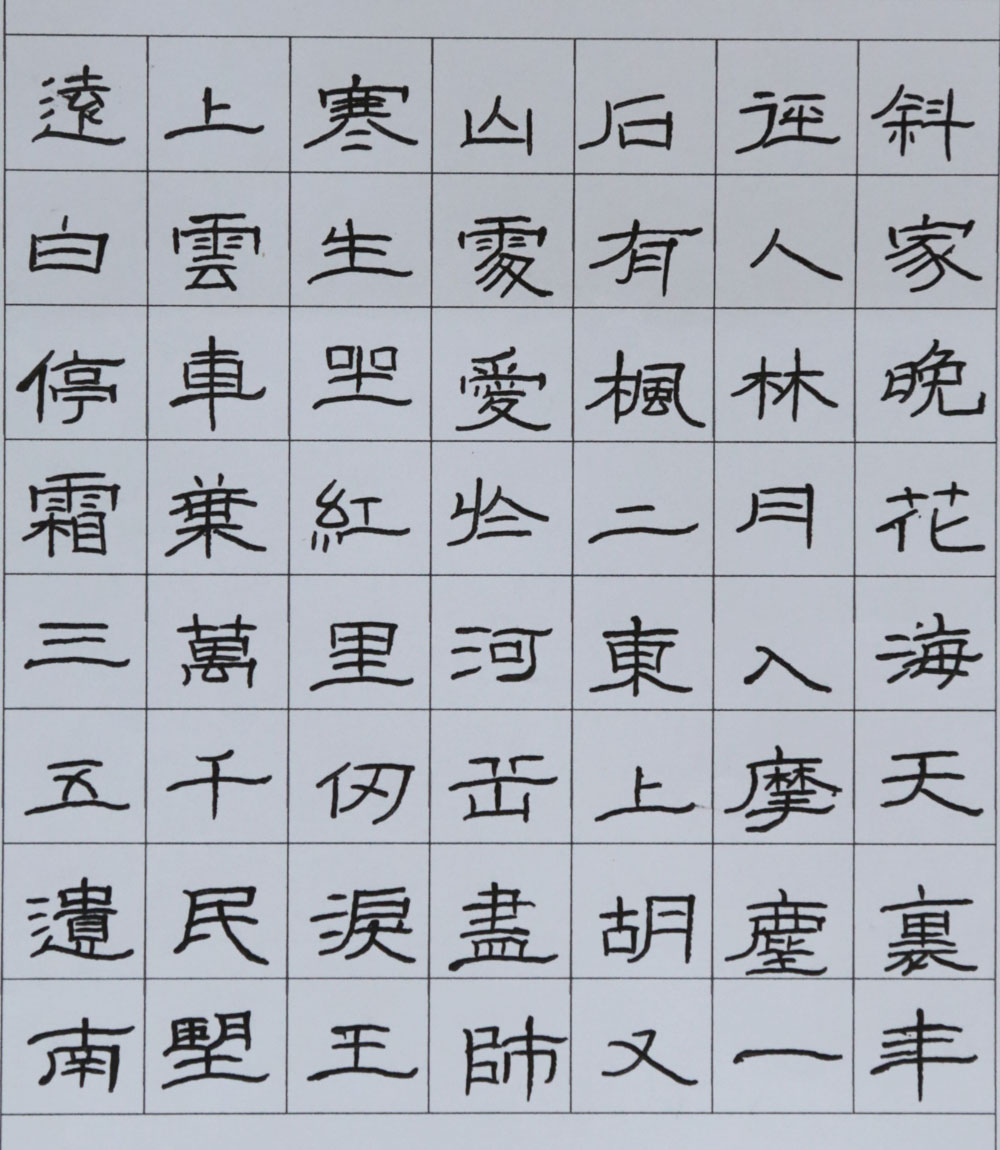 遠上寒山石徑斜
白雲生處有人家
停車坐愛楓林晚
霜葉紅於二月花
三萬里河東入海
五千仞岳上摩天
遺民淚盡胡塵裏
南望王師又一年